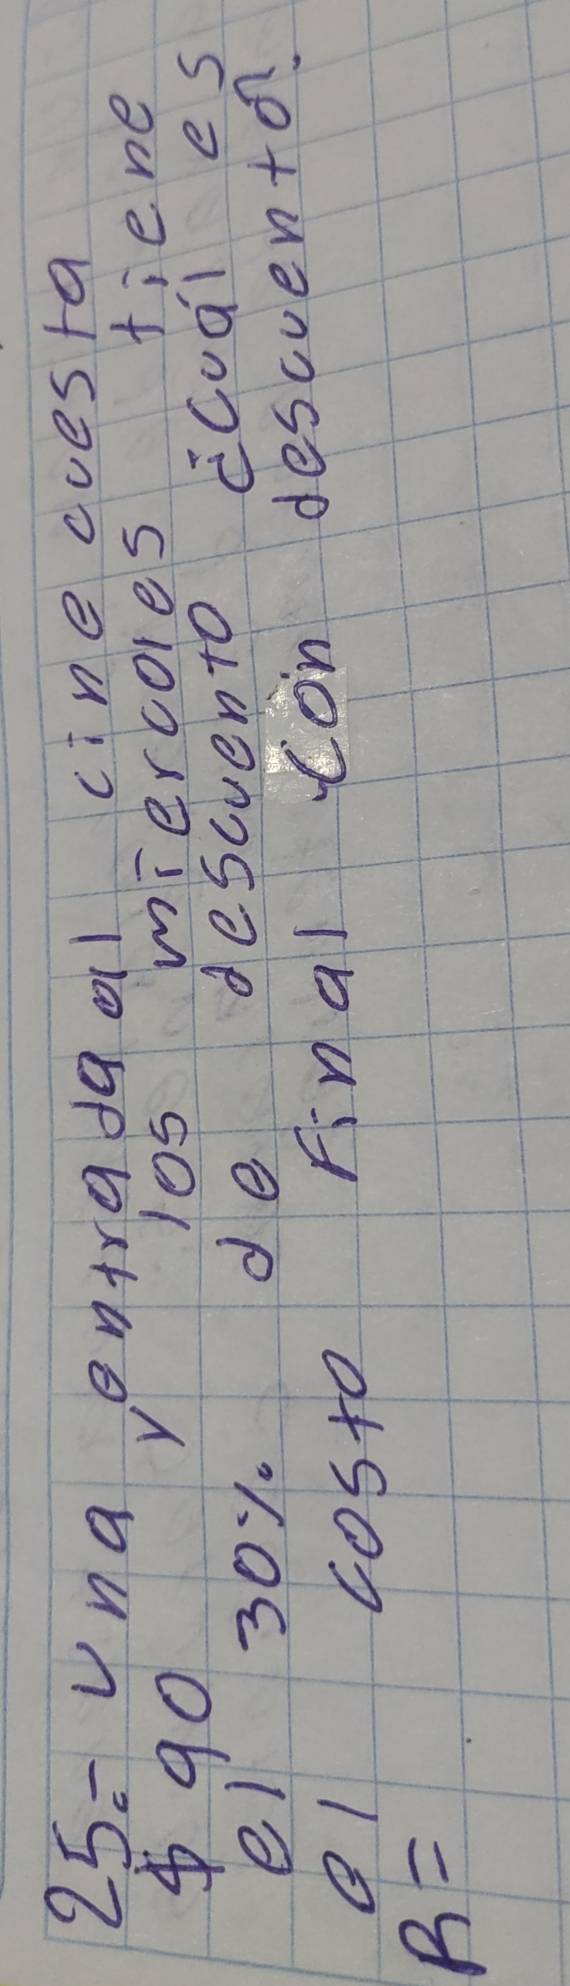 25.- una entrada al cine cuesta
$ 90 y los miercoles tiene
el 30% de descuento ¿cuál es
el costo Final con descuento?
R=